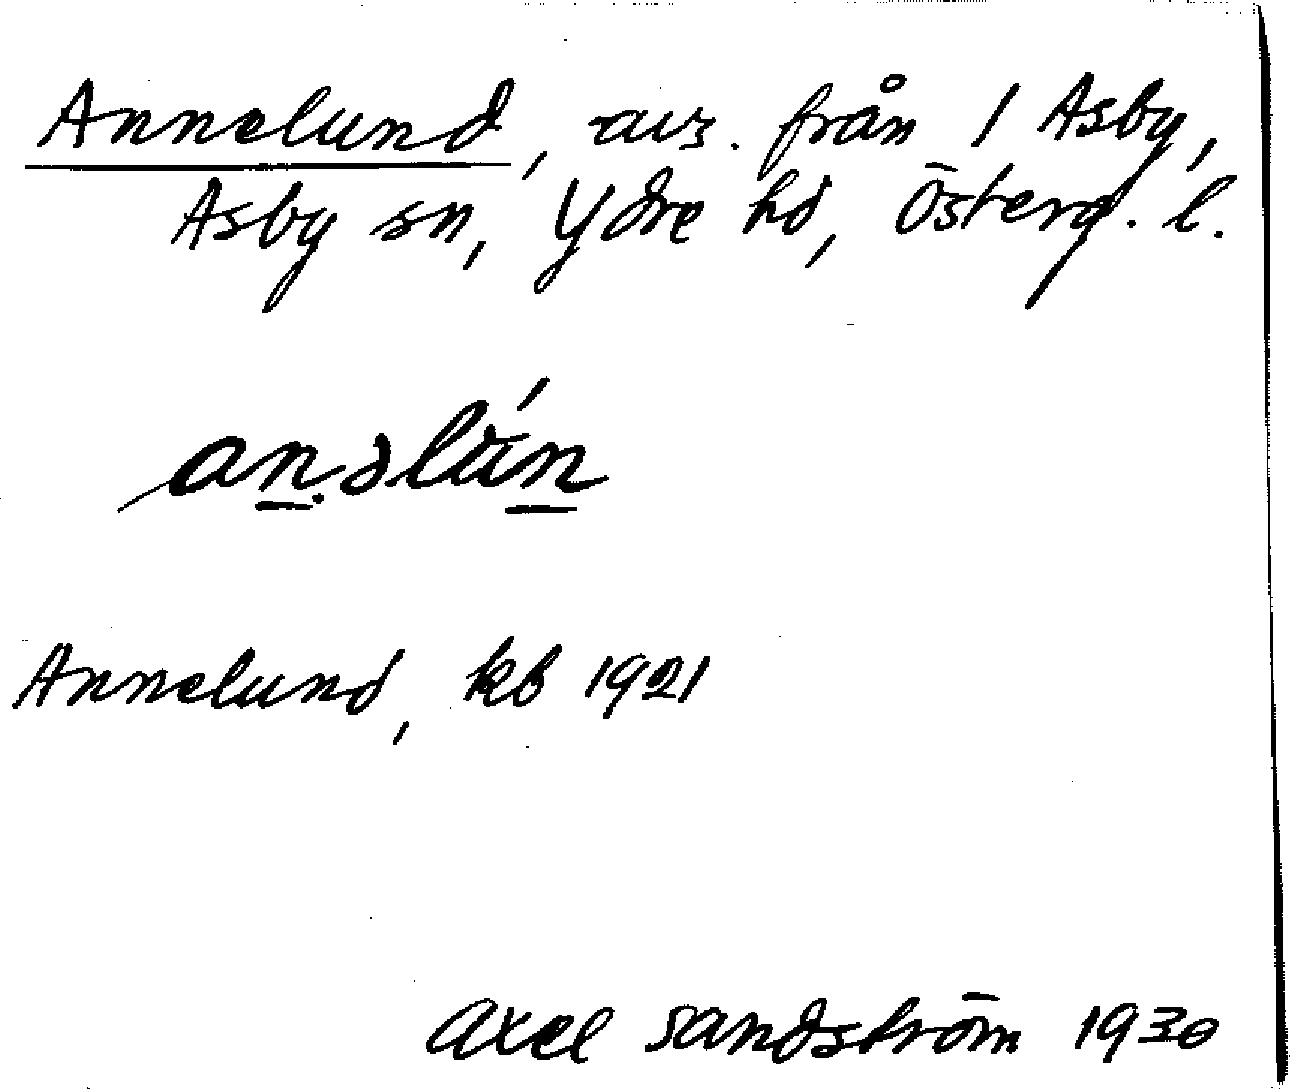 Annelund, avs. från 1 Asby,
Asby sn, Ydre hd, Österg. l.
an.əlún
Annelund, kb 1921
Axel Sandström 1930